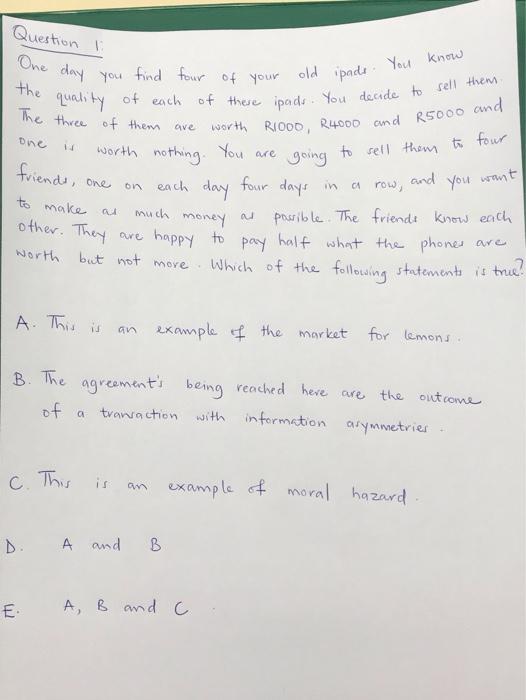 Question 1:
One day you find four of your old ipads. You know
the quality of each of these ipads. You decide to sell them.
The three of them are worth R1000, R4000 and R5000 and
one is worth nothing. You are going to sell them to four
friends, one on each day four days in a row, and you want
to make as much money as possible. The friends know each
other. They are happy to pay half what the phones are
worth but not more. Which of the following statements is true?
A. This is an example of the market for lemons.
B. The agreement's being reached here are the outcome
of a transaction with information asymmetries.
C. This is an example of moral hazard.
D. A and B
E. A, B and C.